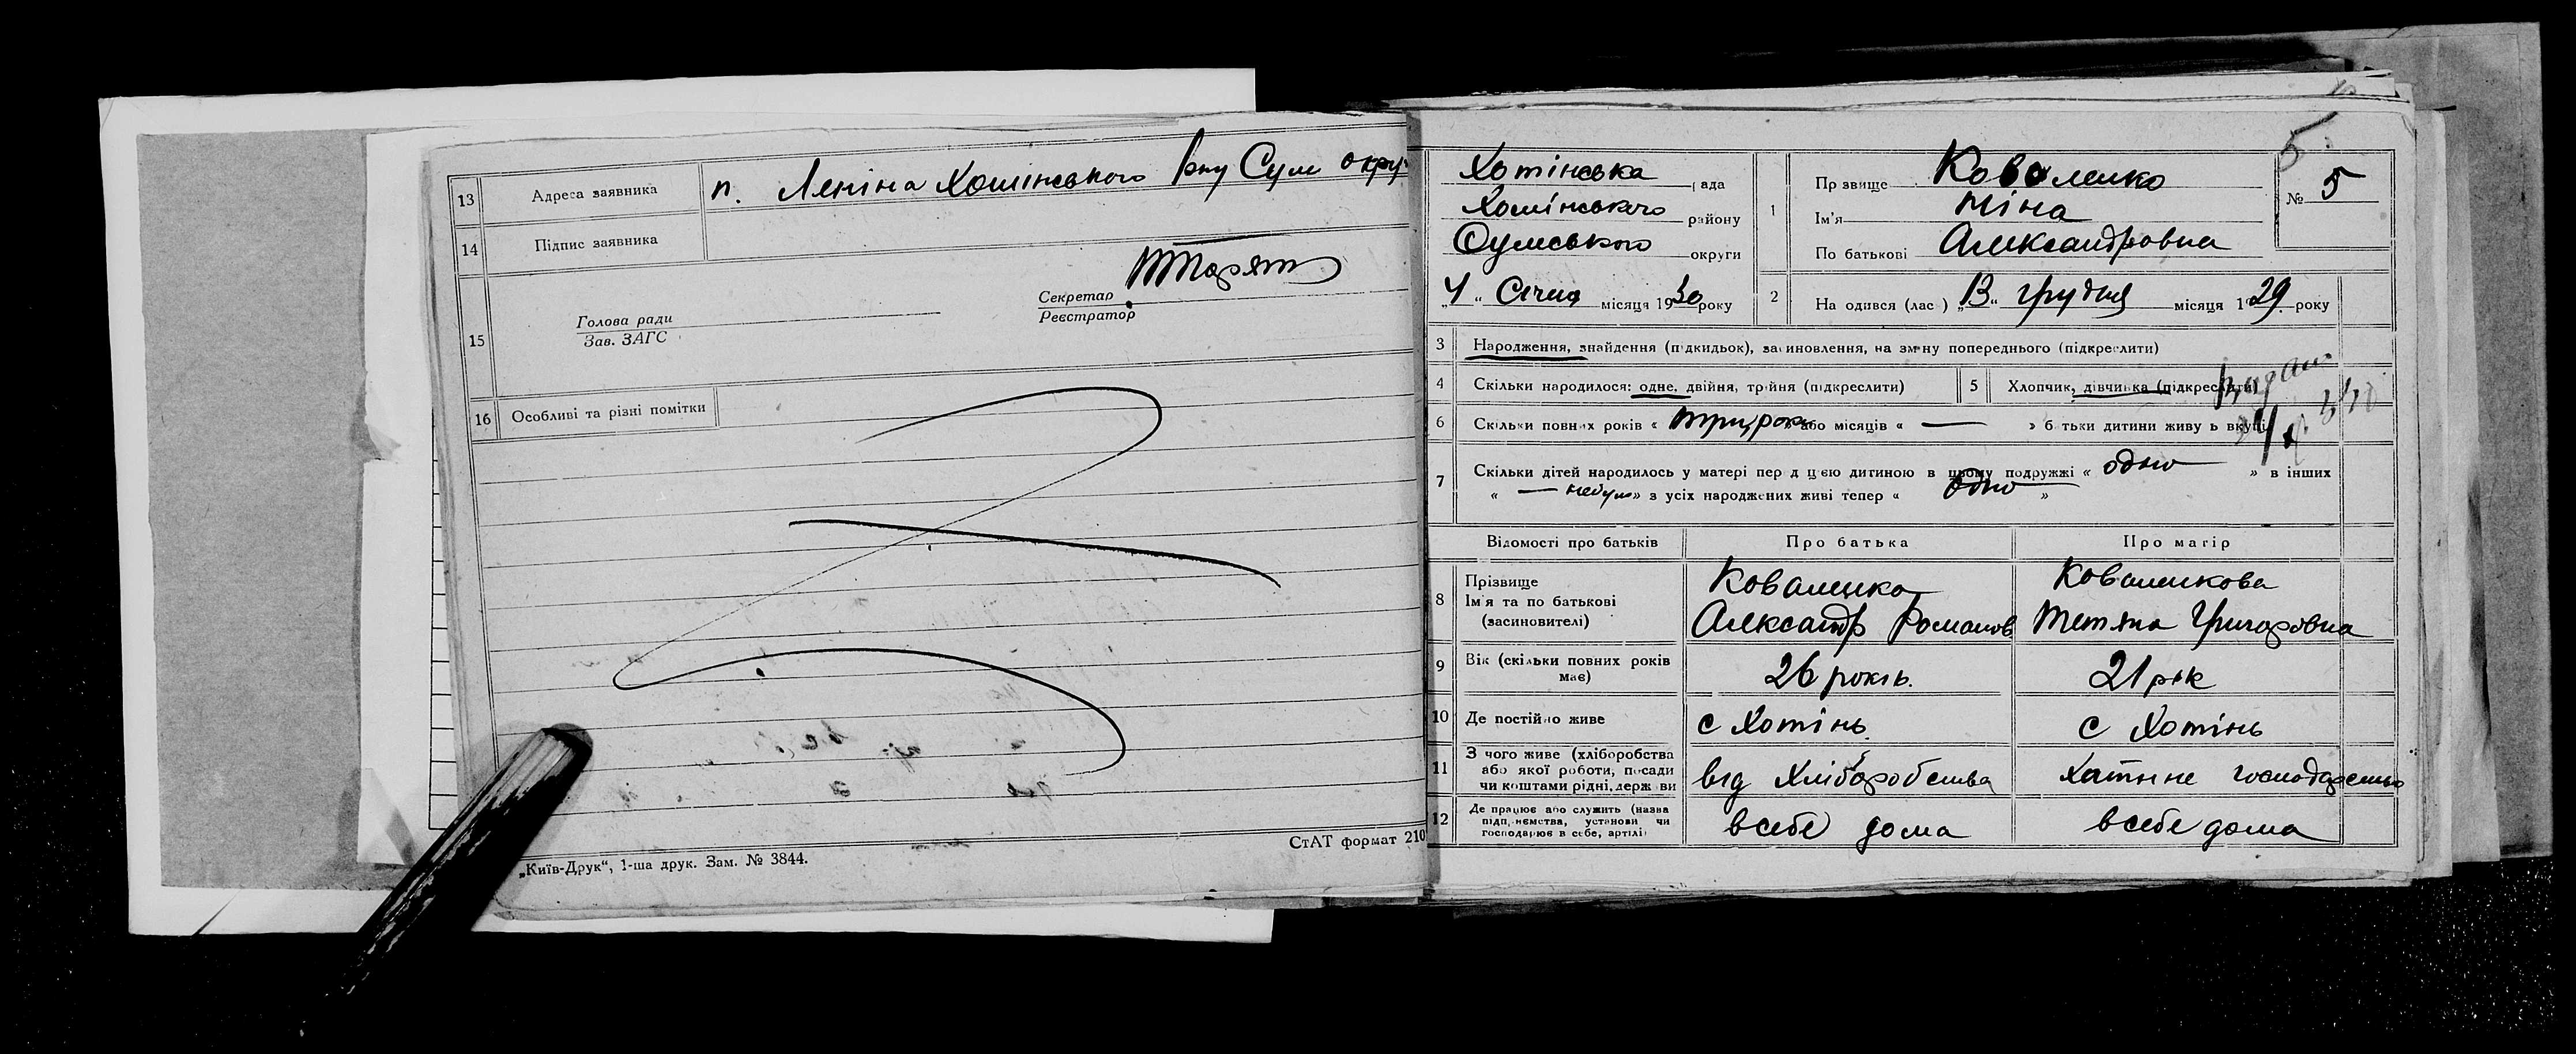 13 Адреса заявника п. Леніна Хотінського р-ну Сум окру.
14 Підпис заявника
15 Голова ради
Зав. ЗАГС
Секретар
Реєстратор
16 Особливі та різні помітки
„Київ-Друк“, 1-ша друк. Зам. № 3844.
СтАТ формат 210
5
Хотінська рада
Хотінського району
Сумського округи
„4“ Січня місяця 1930 року
1 Прізвище Коваленко
Ім'я Ніна
По батькові Александровна
№ 5
2 На одився (лас ) „13“ грудня місяця 1929 року
3 Народження, знайдення (підкидьок), засиновлення, на зміну попереднього (підкреслити)
4 Скільки народилося: одне, двійня, трійня (підкреслити)
5 Хлопчик, дівчинка (підкреслити)
6 Скільки повних років « три роки » або місяців « — » батьки дитини живуть вкупі
7 Скільки дітей народилось у матері перед цією дитиною в цьому подружжі « одно » в інших
« — небуло » з усіх народжених живі тепер « одно »
Відомості про батьків Про батька Про матір
8 Прізвище
Ім'я та по батькові
(засиновителі)
Коваленко
Александр Романов
Коваленкова
Тетяна Григоровна
9 Вік (скільки повних років
має)
26 років.
21 рік
10 Де постійно живе с Хотінь. с Хотінь
11 З чого живе (хліборобства
або якої роботи, посади
чи коштами рідні, держави
від Хліборобства
Хатнне господарство
12 Де працює або служить (назва
підприємства, установи чи
господарює в себе, артілі)
в себе дома
в себе дома